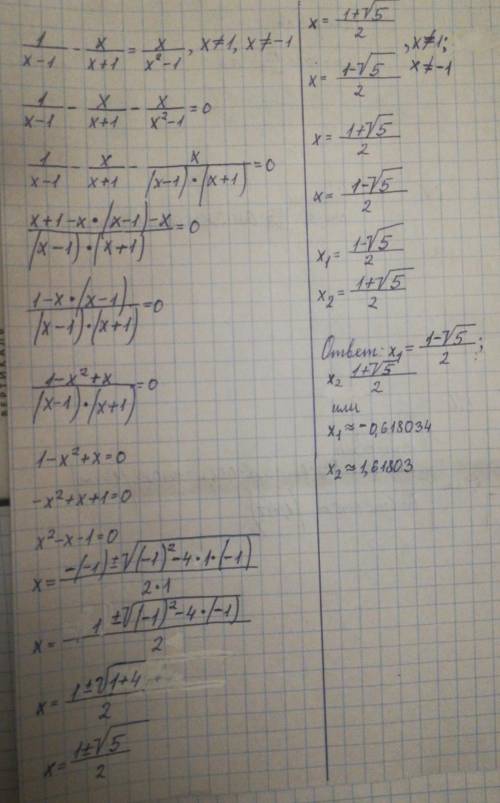 1/(x-1) - x/(x+1) = x/(x²-1), x≠1, x≠-1
1/(x-1) - x/(x+1) - x/(x²-1) = 0
1/(x-1) - x/(x+1) - x/((x-1)•(x+1)) = 0
(x+1-x•(x-1)-x)/((x-1)•(x+1)) = 0
(1-x•(x-1))/((x-1)•(x+1)) = 0
(1-x²+x)/((x-1)•(x+1)) = 0
1-x²+x=0
-x²+x+1=0
x²-x-1=0
x = (-(-1)±√((-1)²-4•1•(-1)))/(2•1)
x = (1±√((-1)²-4•(-1)))/2
x = (1±√(1+4))/2
x = (1±√5)/2
x = (1+√5)/2
x = (1-√5)/2 , x≠1; x≠-1
x = (1+√5)/2
x = (1-√5)/2
x₁ = (1-√5)/2
x₂ = (1+√5)/2
Ответ: x₁ = (1-√5)/2;
x₂ (1+√5)/2
или
x₁ ≈ -0,618034
x₂ ≈ 1,61803